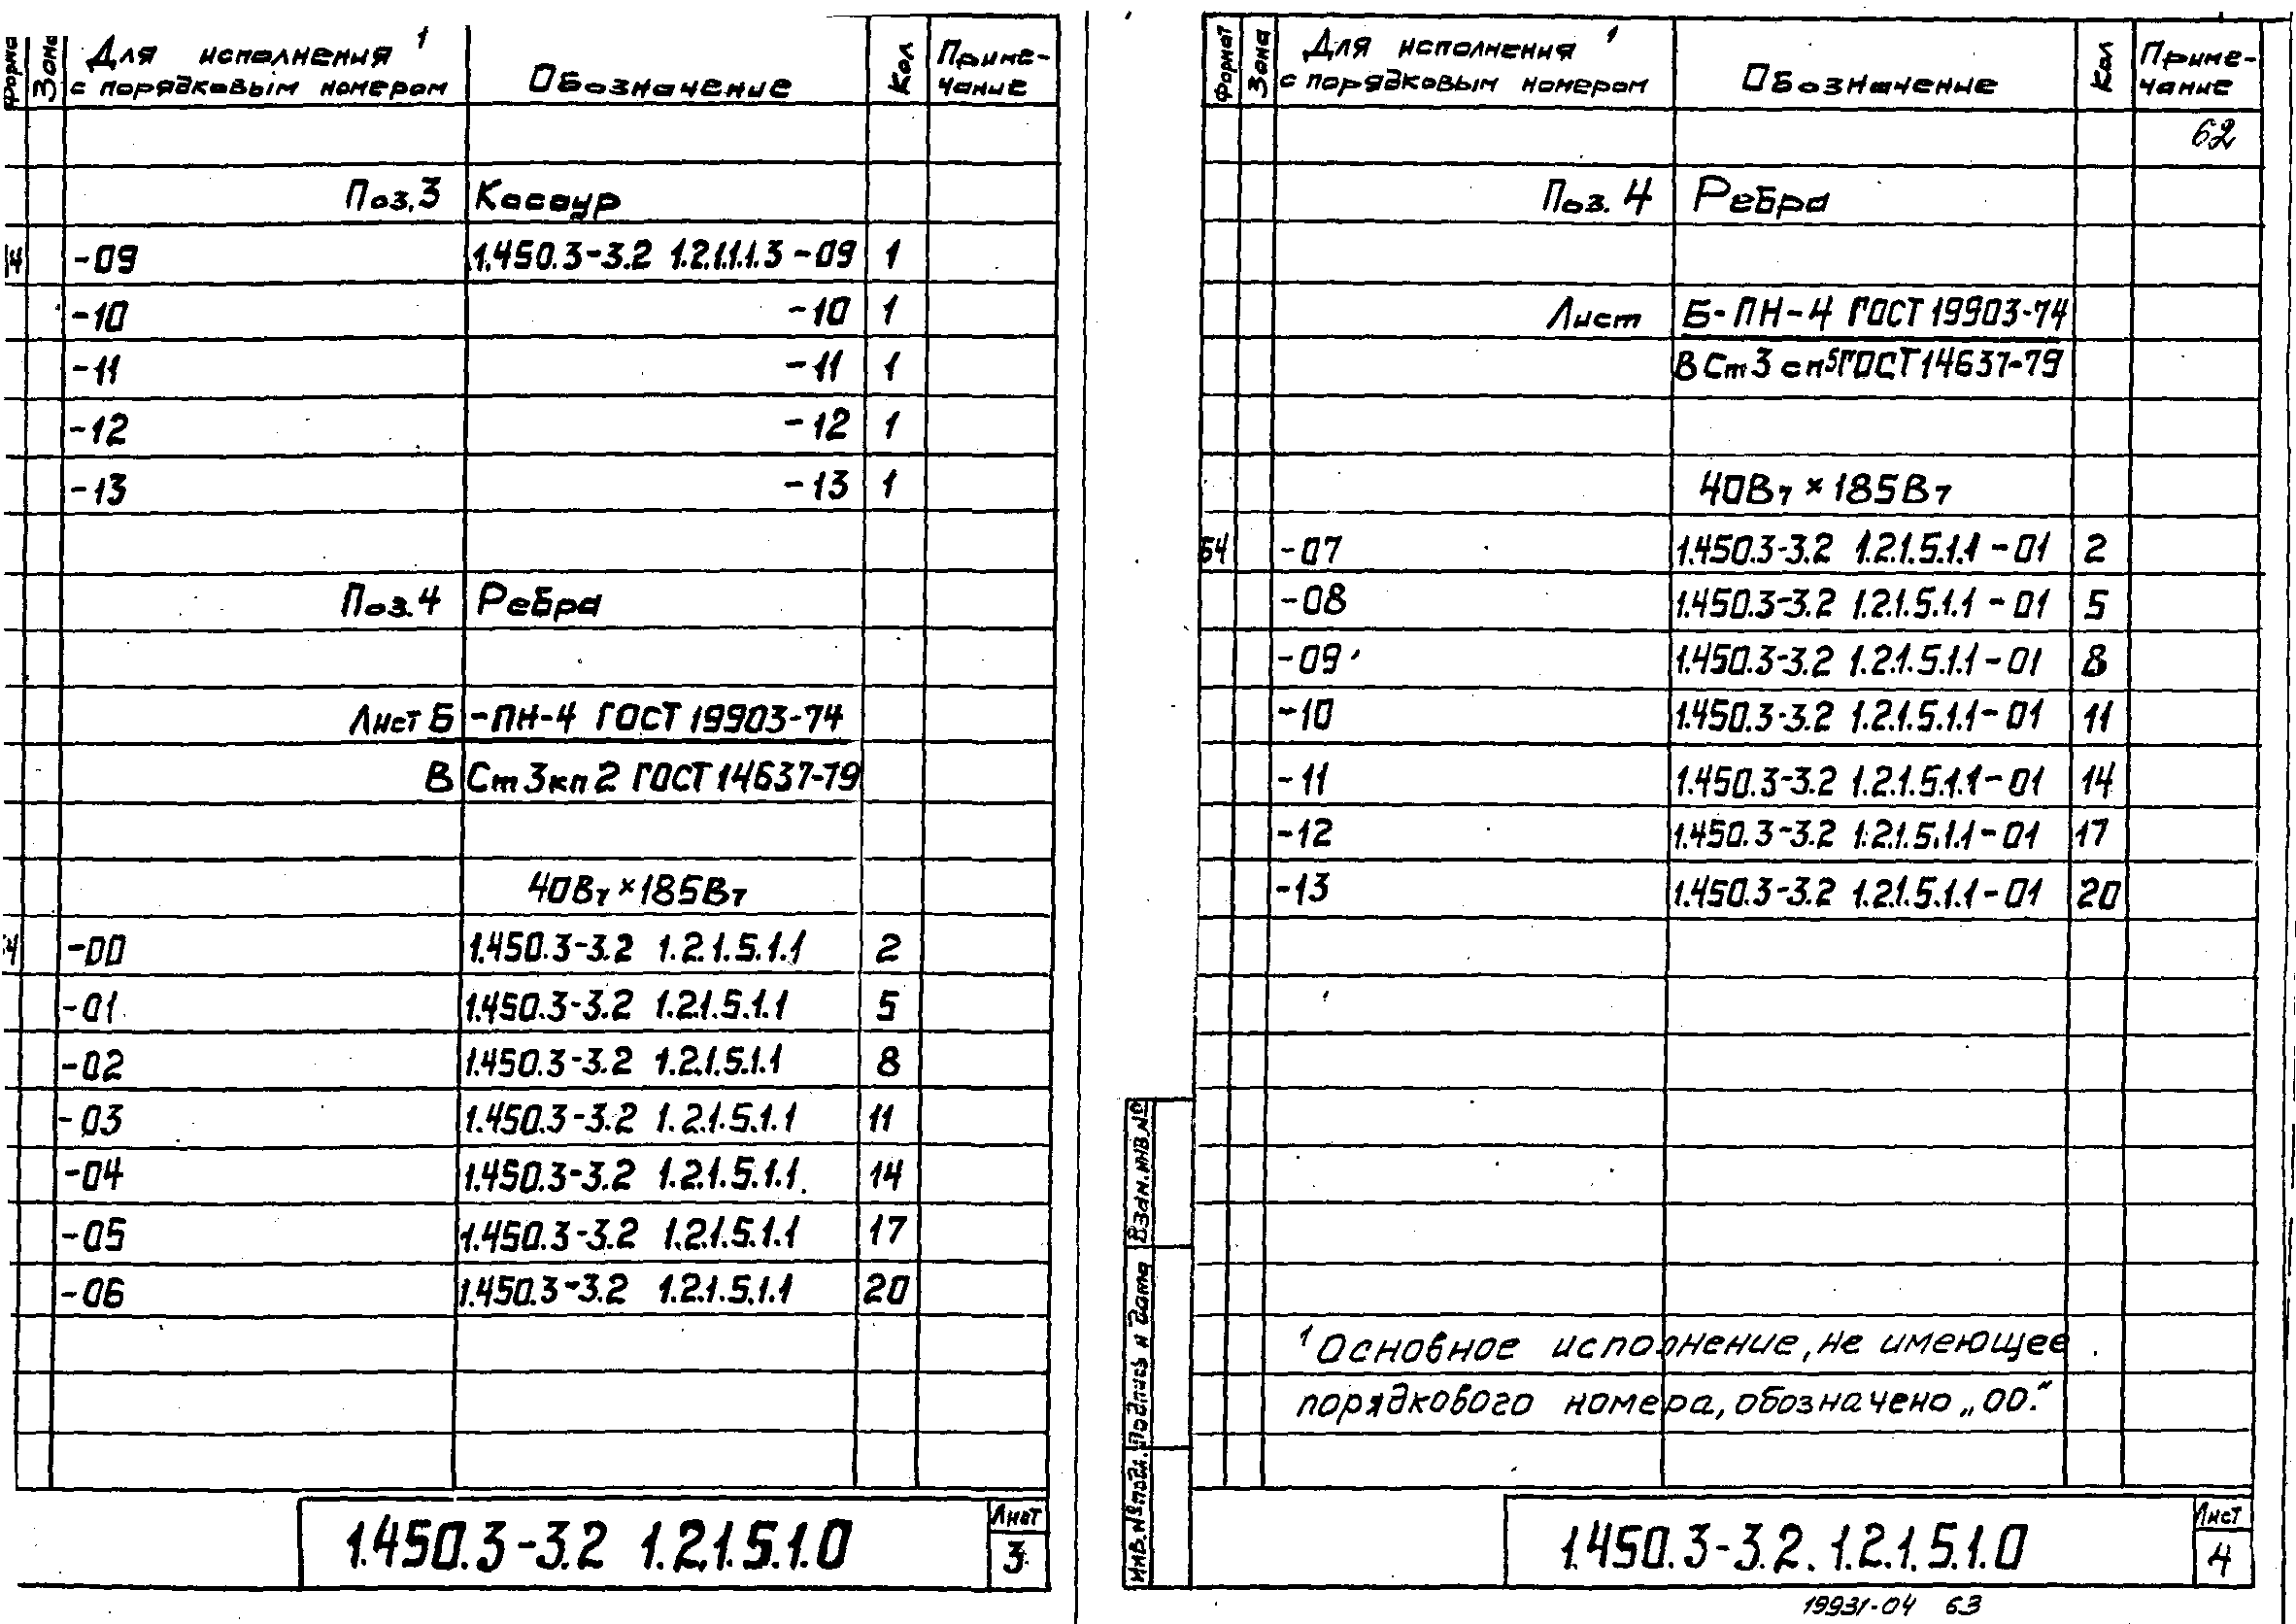 Формат Зона Для исполнения ¹ с порядковым номером Обозначение Кол Приме-чание
Поз.3 Косоур
-09 1.450.3-3.2 1.2.1.1.1.3 -09 1
-10 -10 1
-11 -11 1
-12 -12 1
-13 -13 1
Поз.4 Ребра
Лист Б -ПН-4 ГОСТ 19903-74
В Ст 3кп 2 ГОСТ 14637-79
40В7 × 185В7
-00 1.450.3-3.2 1.2.1.5.1.1 2
-01 1.450.3-3.2 1.2.1.5.1.1 5
-02 1.450.3-3.2 1.2.1.5.1.1 8
-03 1.450.3-3.2 1.2.1.5.1.1 11
-04 1.450.3-3.2 1.2.1.5.1.1 14
-05 1.450.3-3.2 1.2.1.5.1.1 17
-06 1.450.3-3.2 1.2.1.5.1.1 20
1.450.3-3.2 1.2.1.5.1.0
Лист
3
Формат Зона Для исполнения ¹ с порядковым номером Обозначение Кол Приме-чание
62
Поз. 4 Ребра
Лист Б-ПН-4 ГОСТ 19903-74
В Ст 3 сп5 ГОСТ 14637-79
40В7 × 185В7
Б4 -07 1.450.3-3.2 1.2.1.5.1.1 -01 2
-08 1.450.3-3.2 1.2.1.5.1.1 -01 5
-09 1.450.3-3.2 1.2.1.5.1.1 -01 8
-10 1.450.3-3.2 1.2.1.5.1.1 -01 11
-11 1.450.3-3.2 1.2.1.5.1.1 -01 14
-12 1.450.3-3.2 1.2.1.5.1.1 -01 17
-13 1.450.3-3.2 1.2.1.5.1.1 -01 20
¹ Основное исполнение, не имеющее
порядкового номера, обозначено „00."
Инв.№ подл. Подпись и дата Взам.инв.№
1.450.3-3.2. 1.2.1.5.1.0
Лист
4
19931-04 63